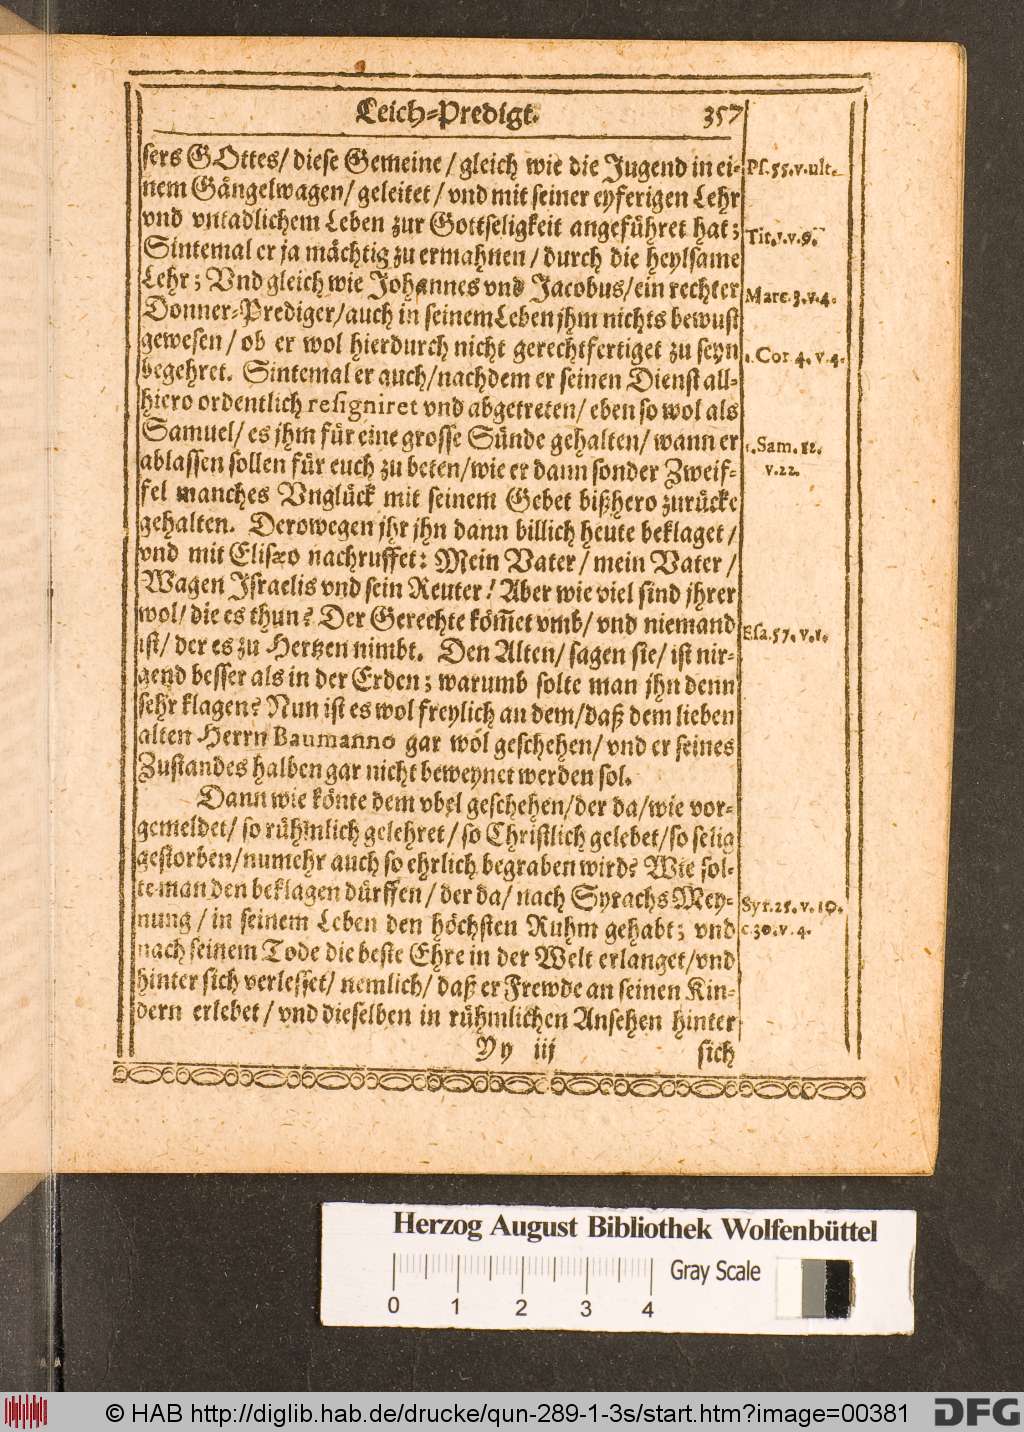 Leich-Predigt. 357
sers GOttes/ diese Gemeine/ gleich wie die Jugend in ei-
nem Gängelwagen/ geleitet/ vnd mit seiner eyferigen Lehr
vnd vntadlichem Leben zur Gottseligkeit angeführet hat;
Sintemal er ja mächtig zu ermahnen/ durch die heylsame
Lehr; Vnd gleich wie Johannes vnd Jacobus/ ein rechter
Donner-Prediger/ auch in seinem Leben jhm nichts bewust
gewesen/ ob er wol hierdurch nicht gerechtfertiget zu seyn
begehret. Sintemal er auch/ nachdem er seinen Dienst all-
hiero ordentlich resigniret vnd abgetreten/ eben so wol als
Samuel/ es jhm für eine grosse Sünde gehalten/ wann er
ablassen sollen für euch zu beten/ wie er dann sonder Zweif-
fel manches Vnglück mit seinem Gebet bißhero zurücke
gehalten. Derowegen jhr jhn dann billich heute beklaget/
vnd mit Elisæo nachruffet: Mein Vater/ mein Vater/
Wagen Israelis vnd sein Reuter! Aber wie viel sind jhrer
wol/ die es thun? Der Gerechte köm̃et vmb/ vnd niemand
ist/ der es zu Hertzen nimbt. Den Alten/ sagen sie/ ist nir-
gend besser als in der Erden; warumb solte man jhn denn
sehr klagen? Nun ist es wol freylich an dem/ daß dem lieben
alten Herrn Baumanno gar wol geschehen/ vnd er seines
Zustandes halben gar nicht beweynet werden sol.
Dann wie könte dem vbel geschehen/ der da/ wie vor-
gemeldet/ so rühmlich gelehret/ so Christlich gelebet/ so selig
gestorben/ numehr auch so ehrlich begraben wird? Wie sol-
te man den beklagen dürffen/ der da/ nach Syrachs Mey-
nung/ in seinem Leben den höchsten Ruhm gehabt; vnd
nach seinem Tode die beste Ehre in der Welt erlanget/ vnd
hinter sich verlesset/ nemlich/ daß er Frewde an seinen Kin-
dern erlebet/ vnd dieselben in rühmlichen Ansehen hinter
Yy iij sich
Ps. 55. v. ult.
Tit. 1. v. 9.
Marc. 3. v. 4.
1. Cor. 4. v. 4.
1. Sam. 12.
v. 22.
Esa. 57. v. 1.
Syr. 25. v. 10.
c. 30. v. 4.
Herzog August Bibliothek Wolfenbüttel
0 1 2 3 4 Gray Scale
© HAB http://diglib.hab.de/drucke/qun-289-1-3s/start.htm?image=00381 DFG